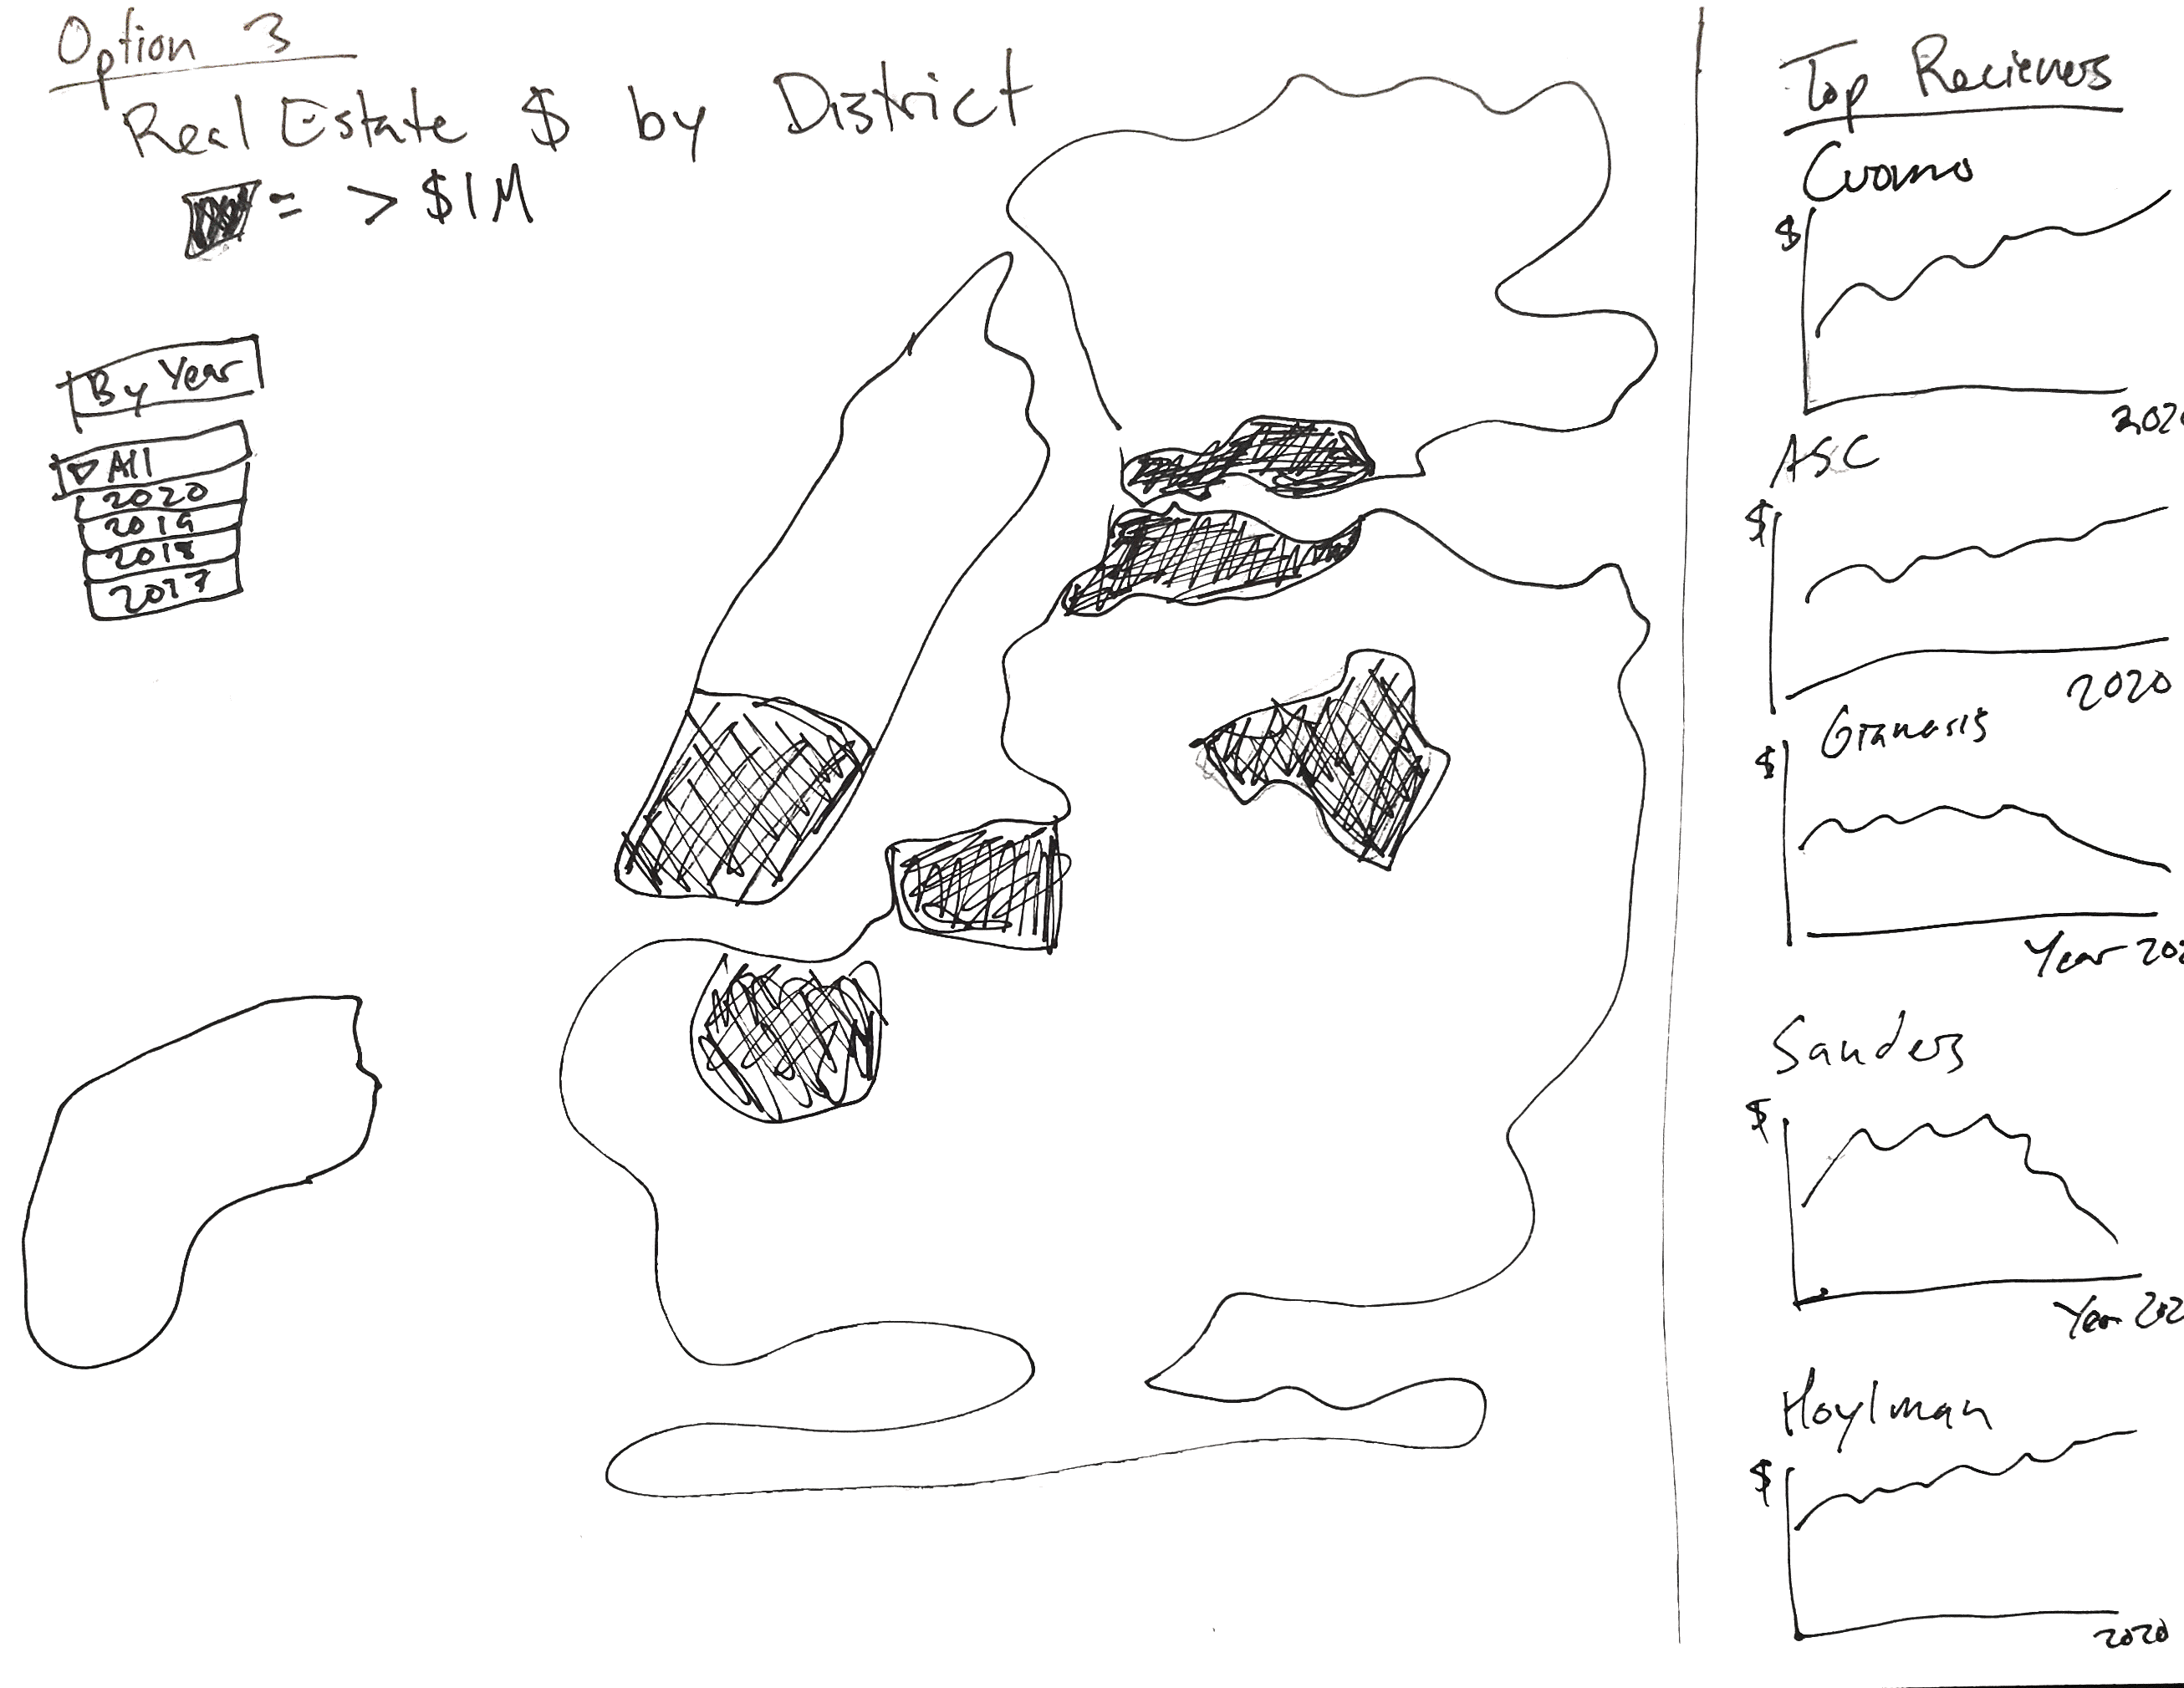 Option 3
Real Estate $ by District
= > $1M
By Year
▽ All
2020
2019
2018
2017
Top Recievers
Cuomo
$
2020
ASC
$
2020
Gianaris
$
Year 202
Sanders
$
Year 202
Hoylman
$
2020